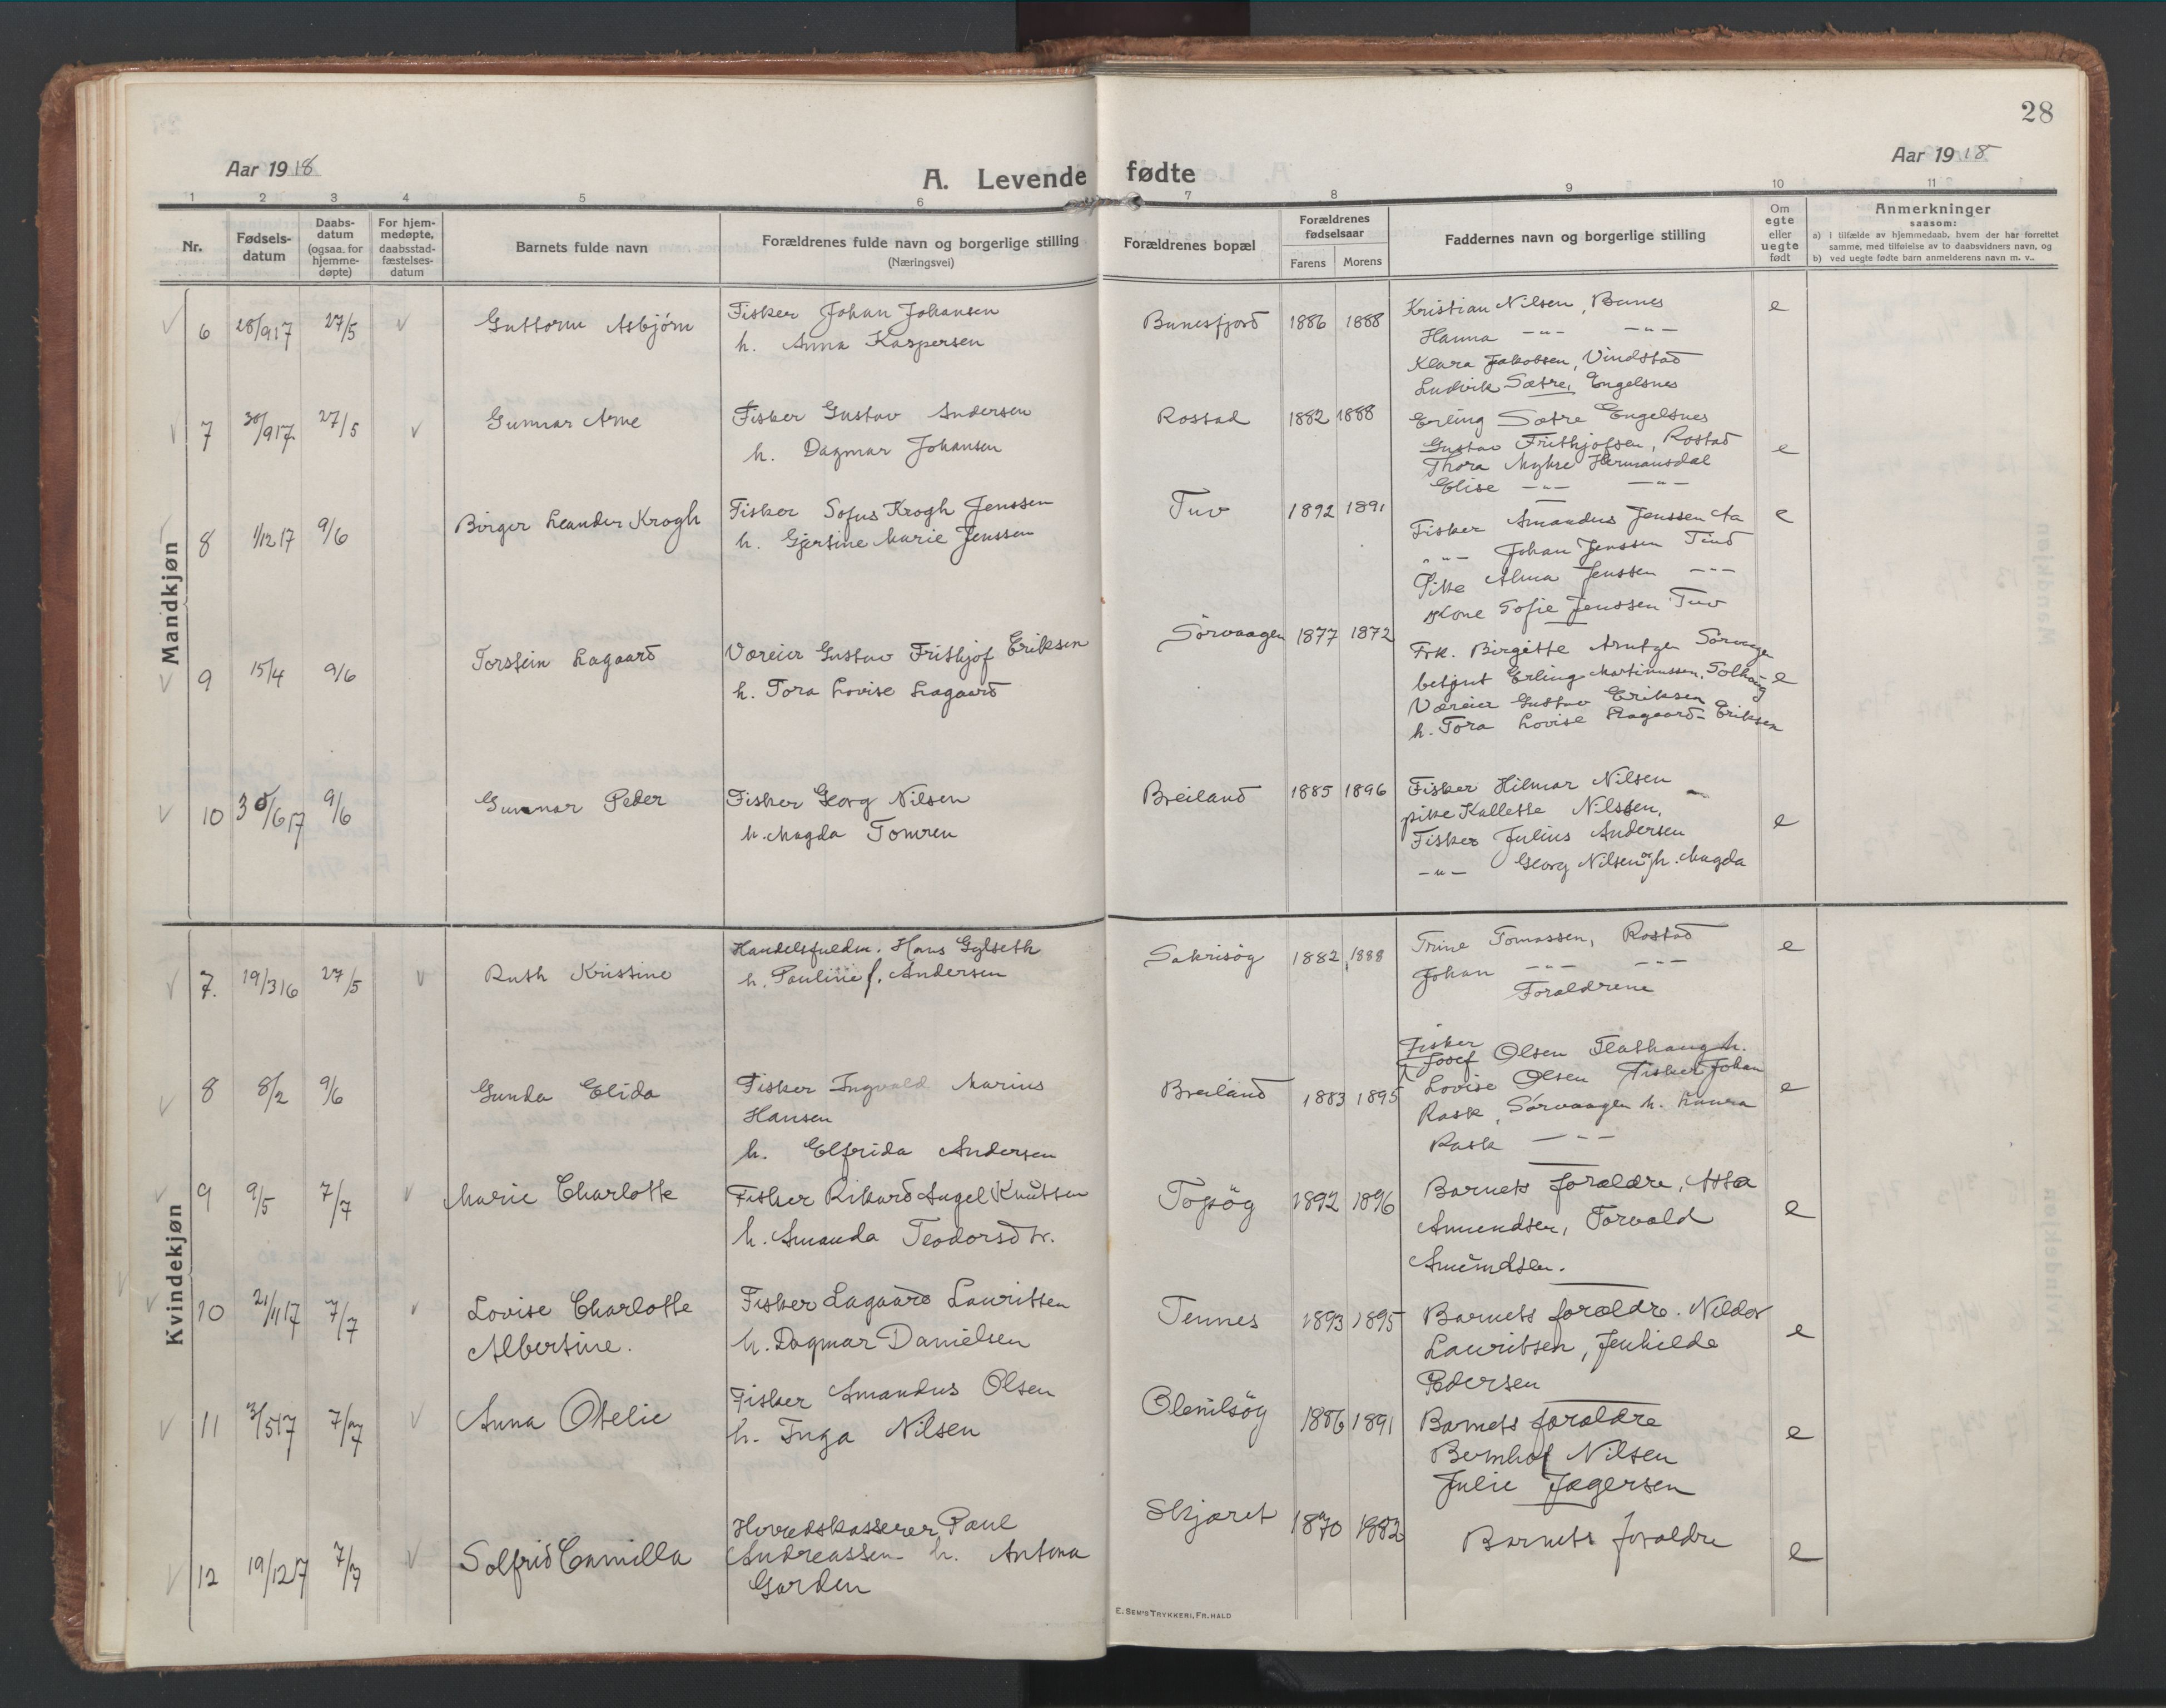 28
Aar 1918
A. Levende fødte
Aar 1918
1 2 3 4 5 6 7 8 9 10 11
Nr.
Fødsels-
datum
Daabs-
datum
(ogsaa. for
hjemme-
døpte)
For hjem-
medøpte,
daabsstad-
fæstelses-
datum
Barnets fulde navn
Forældrenes fulde navn og borgerlige stilling
(Næringsvei)
Forældrenes bopæl
Forældrenes
fødselsaar
Farens Morens
Faddernes navn og borgerlige stilling
Om
egte
eller
uegte
født
Anmerkninger
saasom:
a) I tilfælde av hjemmedaab, hvem der har forrettet
samme, med tilføielse av to daabsvidners navn, og
b) ved uegte fødte barn anmelderens navn m. v..
Mandkjøn
6 28/917 27/5 Guttorm Asbjørn
Fisker Johan Johansen
h. Anna Kaspersen
Bunesfjord 1886 1888
Kristian Nilsen, Bunes
Hanna -"- -"-
Klara Jakobsen, Vindstad
Ludvik Sætre, Engelsnes
e
7 30/917 27/5 Gunnar Arne
Fisker Gustav Andersen
h. Dagmar Johansen
Rostad 1882 1888
Erling Sætre Engelsnes
Gustav Frithjofsen, Rostad
Thora Myhre Hermansdal
Elise -"- -"-
e
8 1/12 17 9/6 Birger Leander Krogh
Fisker Sofus Krogh Jenssen
h. Gjertine Marie Jenssen
Tuv 1892 1891
Fisker Amandus Jenssen Aa
-"- Johan Jenssen Tind
Pike Alma Jenssen -"-
Kone Sofie Jenssen Tuv
e
9 15/4 9/6 Torstein Lagaard
Væreier Gustav Frithjof Eriksen
h. Tora Lovise Lagaard
Sörvaagen 1877 1872
Frk. Birgitte Arntzen Sörvagen
betjnt Erling Martinussen, Solhaug
Væreier Gustav Eriksen
h. Tora Lovise Lagaard-Eriksen
e
10 30/6 17 9/6 Gunnar Peder
Fisker Georg Nilsen
h. Magda Tomren
Breiland 1885 1896
Fisker Hilmar Nilsen
pike Kallette Nilssen,
Fisker Julius Andersen
-"- Georg Nilsen og h. Magda
e
Kvindekjøn
7. 19/316 27/5 Ruth Kristine
Handelsfuldm. Hans Gylseth
h. Pauline f. Andersen
Sakrisøy 1882 1888
Trine Tomassen, Rostad
Johan -"- -"-
Forældrene
e
8 8/2 9/6 Gunda Elida
Fisker Ingvald Marius
Hansen
h. Elfrida Andersen
Breiland 1883 1895
Fisker
Josef Olsen Flathaug h.
Lovise Olsen Fisker Johan
Rask, Sørvaagen h. Laura
Rask -"-
e
9 9/5 7/7 Marie Charlotte
Fisker Rikard Angel Knutsen
h. Amanda Teodorsdtr.
Topöy 1892 1896
Barnets forældre, Asta
Amundsen, Torvald
Amundsen.
e
10 21/1117 7/7 Lovise Charlotte
Albertine.
Fisker Lagaard Lauritsen
h. Dagmar Danielsen
Tennes 1893 1895
Barnets forældre. Neldor
Lauritsen, Jenhilde
Pedersen
e
11 3/517 7/7 Anna Otelie
Fisker Amandus Olsen
h. Inga Nilsen
Olenilsöy 1886 1891
Barnets forældre
Bernhof Nilsen
Julie Jægersen
e
12 19/1217 7/7 Solfrid Camilla
Herredskasserer Paul
Andreassen h. Antona
Garden
Skjæret 1870 1882
Barnets forældre
e
E. Sem's Trykkeri, Fr.hald